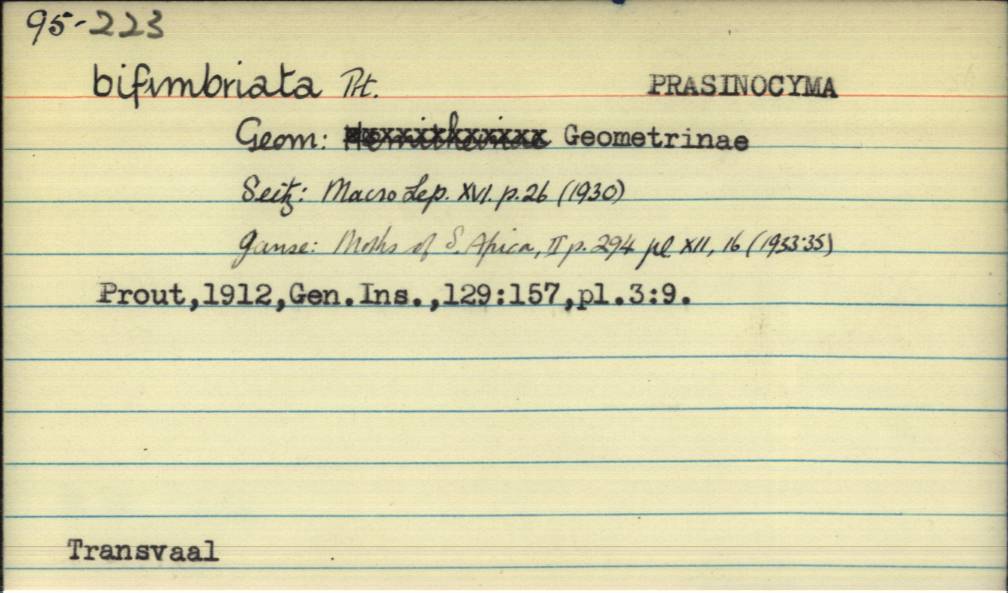 95-223
bifimbriata Prt. PRASINOCYMA
Geom: Geometrinae
Seitz: Macro Lep. XVI. p.26 (1930)
Janse: Moths of S. Africa, II p. 294 pl XII, 16 (1933-35)
Prout,1912,Gen.Ins.,129:157,pl.3:9.
Transvaal